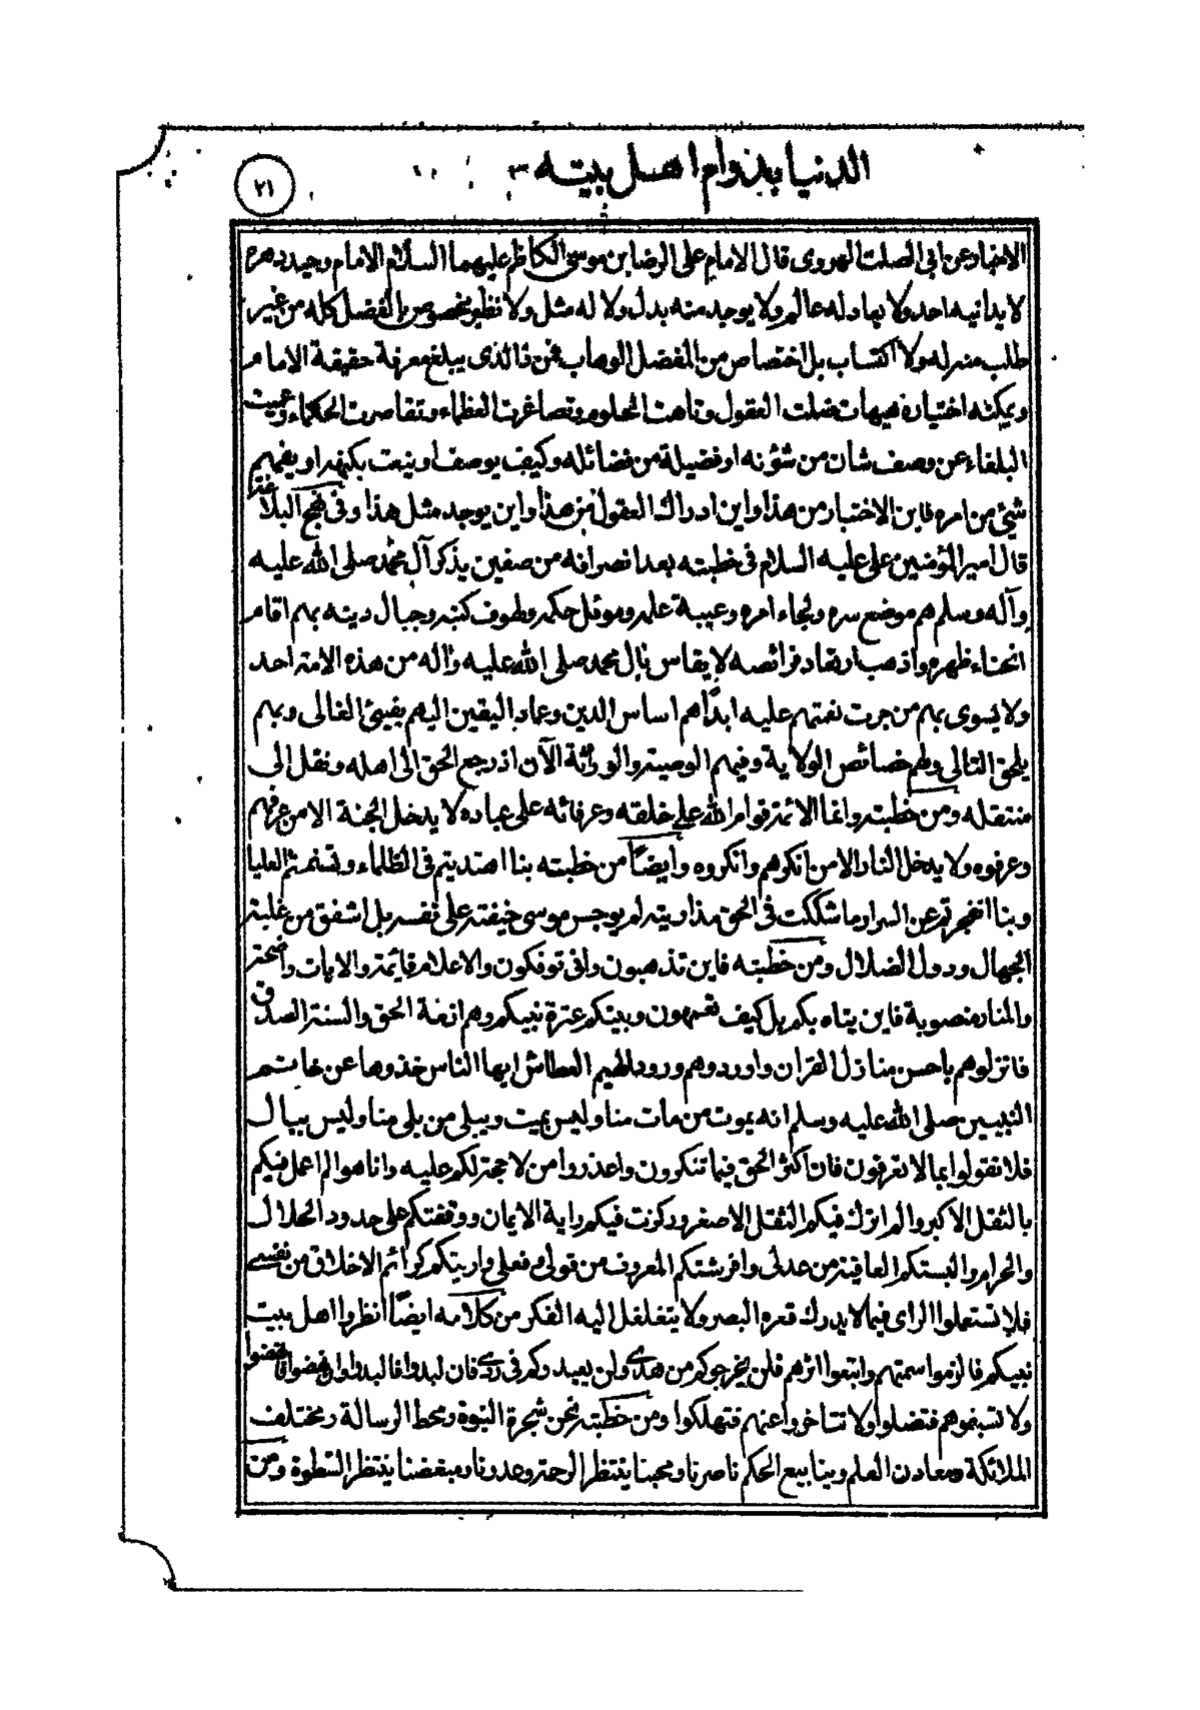 الدنيا بدوام اهل بيته
٢١
عن ابى الصلت الهروى قال الامام على الرضا بن موسى الكاظم عليهما السلام الامام وحيد دهره
لا يدانيه احد ولا يعادله عالم ولا يوجد منه بدل ولا له مثل ولا نظير مخصوص بالفضل كله من غير
طلب منه له ولا اكتساب بل اختصاص من المفضل الوهاب فمن ذا الذى يبلغ معرفة حقيقة الامام
ويمكنه اختياره هيهات ضلت العقول وتاهت الحلوم وتصاغرت العظماء وتقاصرت الحكماء وعميت
البلغاء عن وصف شان من شؤنه او فضيلة من فضائله وكيف يوصف او ينعت بكنهه او يفهم
شئ من امره فاين الاختيار من هذا واين ادراك العقول من هذا واين يوجد مثل هذا وفى نهج البلاغة
قال امير المؤمنين على عليه السلام فى خطبته بعد انصرافه من صفين يذكر آل محمد صلى الله عليه
وآله وسلم هم موضع سره ولجاء امره وعيبة علمه وموئل حكمه وكهوف كتبه وجبال دينه بهم اقام
انحناء ظهره واذهب ارتعاد فرائصه لا يقاس بال محمد صلى الله عليه وآله من هذه الامة احد
ولا يسوى بهم من جرت نعمتهم عليه ابدًا هم اساس الدين وعماد اليقين اليهم يفيئ الغالى وبهم
يلحق التالى ولهم خصائص الولاية وفيهم الوصية والوراثة الآن اذ رجع الحق الى اهله ونقل الى
منتقله ومن خطبته وانما الائمة قوام الله على خلقه وعرفائه على عباده لا يدخل الجنة الا من عرفهم
وعرفوه ولا يدخل النار الا من انكرهم وانكروه وايضًا من خطبته بنا اهتديتم فى الظلماء وتسنمتم العليا
وبنا انفجرتم عن السرار ما شككت فى الحق مذ اريته لم يوجس موسى خيفته على نفسه بل اشفق من غلبة
الجهال ودول الضلال ومن خطبته فاين تذهبون وانى توفكون والاعلام قائمة والايات واضحة
والمنار منصوبة فاين يتاه بكم بل كيف تعمهون وبينكم عترة نبيكم وهم ازمة الحق والسنة الصدق
فانزلوهم باحسن منازل القران واوردوهم ورود الهيم العطاش ايها الناس خذوها عن خاتم
النبيين صلى الله عليه وسلم انه يموت من مات منا وليس بميت ويبلى من بلى منا وليس ببال
فلا تقولوا بما لا تعرفون فان اكثر الحق فيما تنكرون واعذروا من لا حجة لكم عليه وانا هو الم اعمل فيكم
بالثقل الاكبر والم اترك فيكم الثقل الاصغر وركزت فيكم راية الايمان ووقفتكم على حدود الحلال
والحرام والبستكم العافية من عدلى وافرشتكم المعروف من قولى وفعلى واريتكم كرائم الاخلاق من نفسى
فلا تستعملوا الراى فيما لا يدرك قعره البصر ولا يتغلغل اليه الفكر من كلامه ايضًا انظروا اهل بيت
نبيكم فالزموا سمتهم واتبعوا اثرهم فلن يخرجوكم من هدى ولن يعيدوكم فى ردى فان لبدوا فالبدوا وان نهضوا فانهضوا
ولا تسبقوهم فتضلوا ولا تتاخروا عنهم فتهلكوا ومن خطبته نحن شجرة النبوة ومحط الرسالة ومختلف
الملائكة ومعادن العلم وينابيع الحكم ناصرنا ومحبنا ينتظر الرحمة وعدونا ومبغضنا ينتظر السطوة ومن